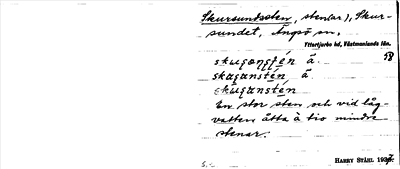 Skursundssten, sten(ar), Skur-
sundet, Ängsö sn,
Yttertjurbo hd, Västmanlands län.
58
skuganstén å
skaganstén å
skuganstén
En stor sten och vid låg-
vatten åtta à tio mindre
stenar.
HARRY STÅHL 1937.